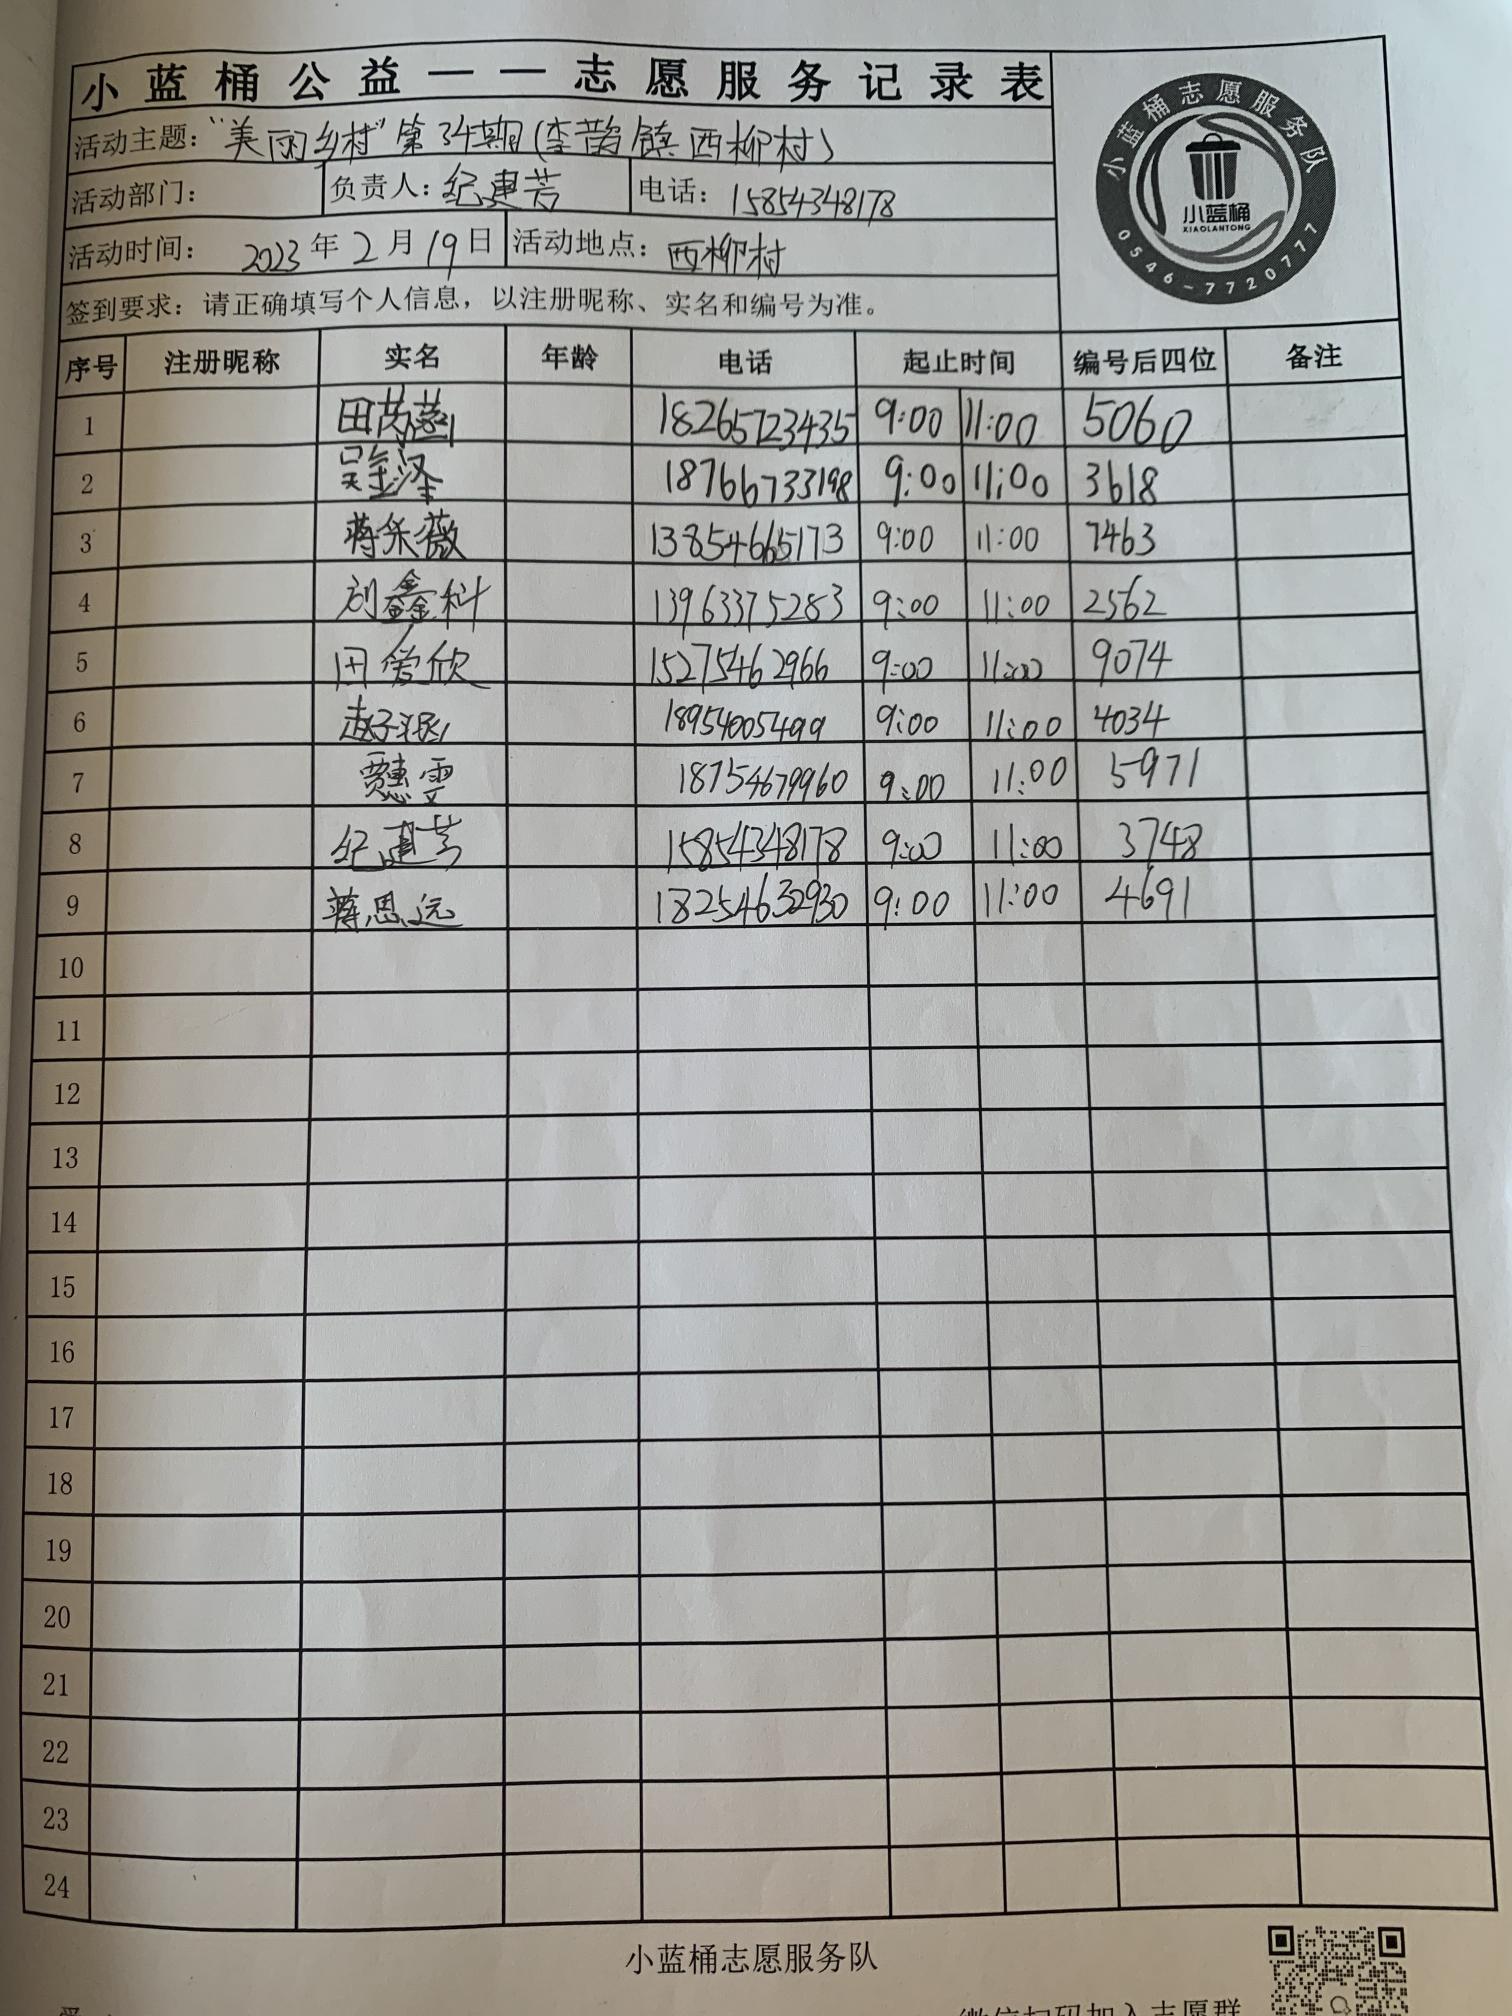 小蓝桶公益——志愿服务记录表
活动主题：“美丽乡村”第34期(李鹊镇西柳村)
活动部门： 负责人：纪建芳 电话：15854348178
活动时间： 2023年2月19日 活动地点：西柳村
签到要求：请正确填写个人信息，以注册昵称、实名和编号为准。
小蓝桶志愿服务队
小蓝桶
XIAOLANTONG
0546-7720777
序号 注册昵称 实名 年龄 电话 起止时间 编号后四位 备注
1 田 18265723435 9:00 11:00 5060
2 吴金泽 18766733198 9:00 11:00 3618
3 蒋采薇 13854665173 9:00 11:00 7463
4 刘鑫科 13963375283 9:00 11:00 2562
5 田爱欣 15275462966 9:00 11:00 9074
6 赵子 18954005499 9:00 11:00 4034
7 贾惠雯 18754679960 9:00 11:00 5971
8 纪建芳 15854348178 9:00 11:00 3748
9 蒋思远 18254632930 9:00 11:00 4691
10
11
12
13
14
15
16
17
18
19
20
21
22
23
24
小蓝桶志愿服务队
微信扫码加入志愿群